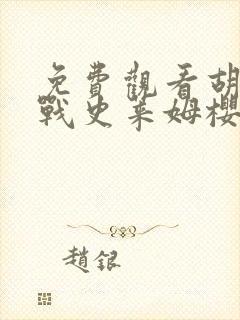 免費觀看胡
戰史萊姆櫻
趙銀